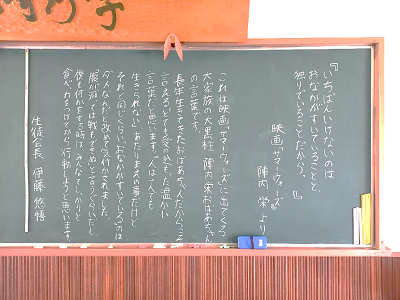 『いちばんいけないのは
おなかがすいていることと
独りでいることだから。』
映画『サマーウォーズ』
陣内 栄 より
これは映画『サマーウォーズ』に出てくる、
大家族の大黒柱 陣内栄おばあちゃん
の言葉です。
長年生きてきたおばあちゃんだからこそ
言える、とても愛の込もった温かい
言葉だと思います。「人は一人でも
生きられない」あたりまえの事だけど
それと同じくらい「おなかがすいている」のは
ダメなんだと改めて気付かされました。
「腹が減っては戦もできぬ」と言うぐらいだし、
僕も何かをする時は、みんなでしっかりと
食べ力をつけてから行動しようと思います。
生徒会長 伊藤 悠悟